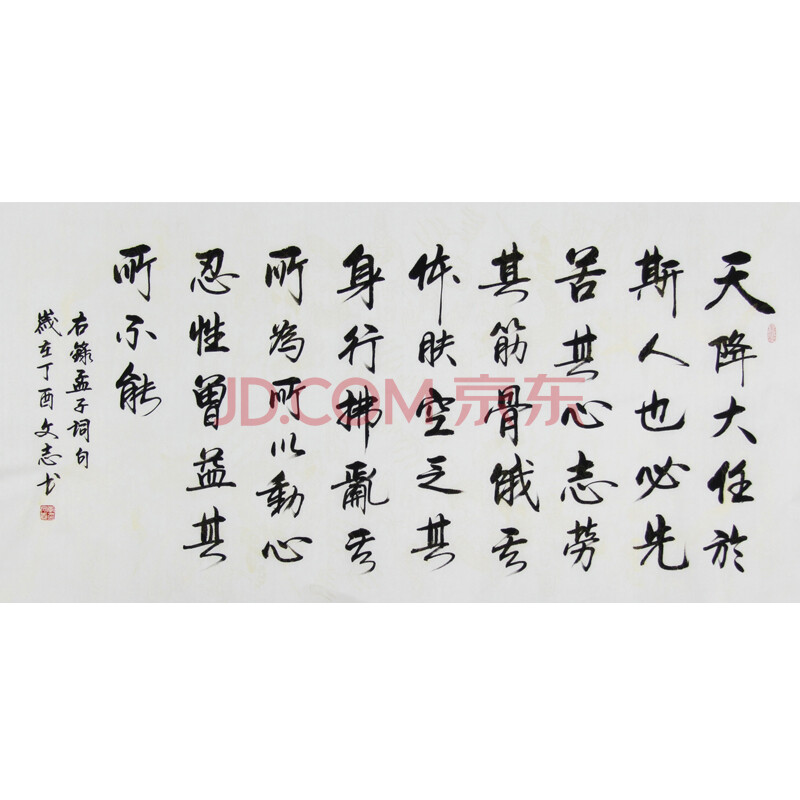 天降大任於
斯人也必先
苦其心志劳
其筋骨饿其
体肤空乏其
身行拂亂其
所為所以動心
忍性曾益其
所不能
右録孟子词句
歲在丁酉文志书
JD.COM 京东